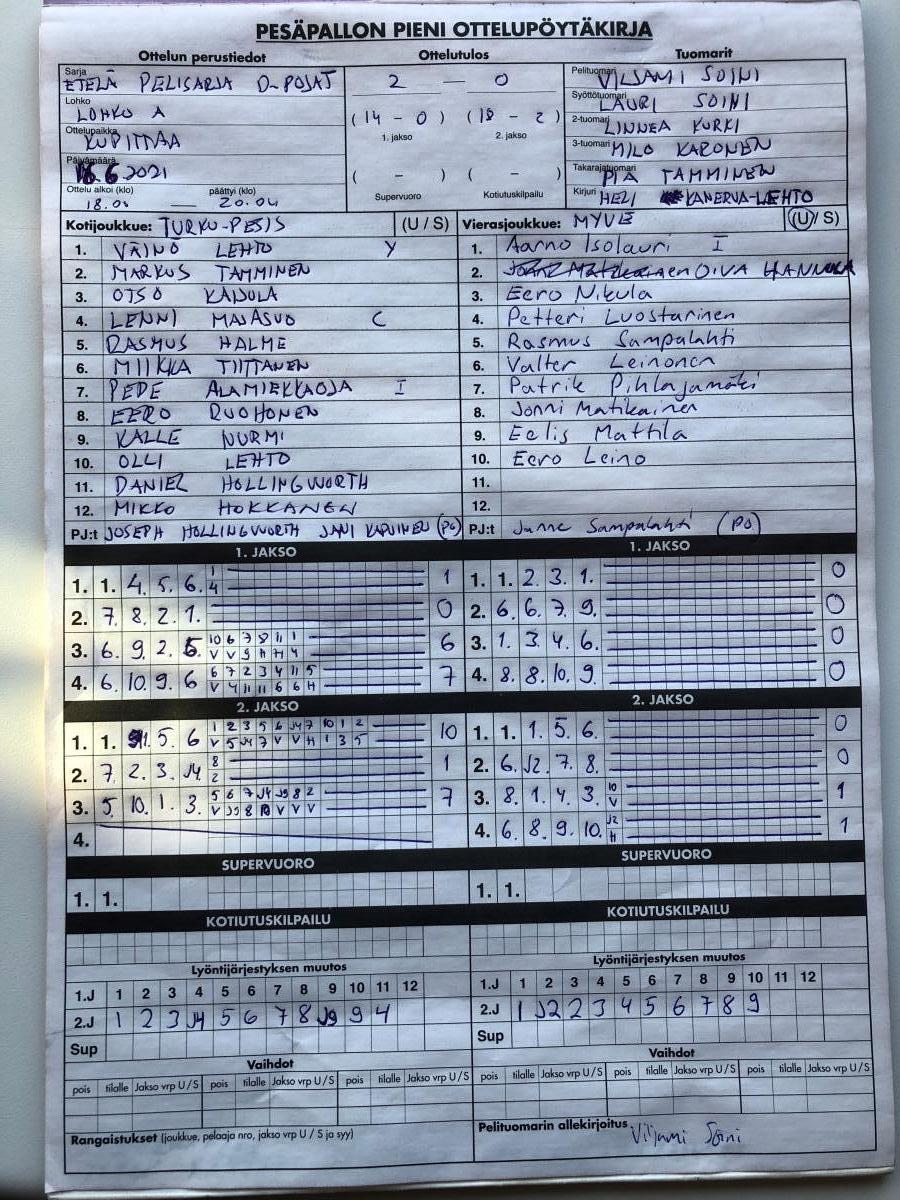 PESÄPALLON PIENI OTTELUPÖYTÄKIRJA
Ottelun perustiedot Ottelutulos Tuomarit
Sarja ETELÄ PELISARJA D-POJAT
Lohko LOHKO A
Ottelupaikka KUPITTAA
Päivämäärä 16.6 2021
Ottelu alkoi (klo) päättyi (klo)
18.00 — 20.04
2 — 0
(14 - 0) (18 - 2)
1. jakso 2. jakso
( - ) ( - )
Supervuoro Kotiutuskilpailu
Pelituomari VILJAMI SOINI
Syöttötuomari LAURI SOINI
2-tuomari LINNEA KURKI
3-tuomari MILO KARONEN
Takarajatuomari PIA TAMMINEN
Kirjuri HELI KANERVA-LEHTO
Kotijoukkue: TURKU-PESIS (U / S)
1. VÄINÖ LEHTO Y
2. MARKUS TAMMINEN
3. OTSO KAJULA
4. LENNI MAJASUO C
5. RASMUS HALME
6. MIIKKA TIITTANEN
7. PEDE ALAMIEKKAOJA I
8. EERO RUOHONEN
9. KALLE NURMI
10. OLLI LEHTO
11. DANIEL HOLLINGWORTH
12. MIKKO HOKKANEN
PJ:t JOSEPH HOLLINGWORTH JANI KARVINEN (PO)
Vierasjoukkue: MYVE (U / S)
1. Aarno Isolauri I
2. OIVA HANNULA
3. Eero Nikula
4. Petteri Luostarinen
5. Rasmus Sampalahti
6. Valter Leinonen
7. Patrik Pihlajamäki
8. Jonni Matikainen
9. Eelis Mattila
10. Eero Leino
11.
12.
PJ:t Janne Sampalahti (PO)
1. JAKSO
1. 1. 4. 5. 6. 1 1
4
2. 7. 8. 2. 1. 0
3. 6. 9. 2. 5. 10 6 7 8 11 1 6
V V 9 H H 4
4. 6. 10. 9. 6 6 7 2 3 4 11 5 7
V 4 11 11 6 6 H
1. JAKSO
1. 1. 2. 3. 1. 0
2. 6. 6. 7. 9. 0
3. 1. 3. 4. 6. 0
4. 8. 8. 10. 9. 0
2. JAKSO
1. 1. 5 6 1 2 3 5 6 J4 7 10 1 2 10
V 5 J4 7 V V H 1 3 5
2. 7. 2. 3. J4 8 1
2
3. 5. 10. 1. 3. 5 6 7 J4 J9 8 2 7
V J9 8 10 V V V
4.
2. JAKSO
1. 1. 1. 5. 6. 0
2. 6. J2. 7. 8. 0
3. 8. 1. 4. 3. 10 1
V
4. 6. 8. 9. 10. J2 1
H
SUPERVUORO
1. 1.
SUPERVUORO
1. 1.
KOTIUTUSKILPAILU
KOTIUTUSKILPAILU
Lyöntijärjestyksen muutos
1.J 1 2 3 4 5 6 7 8 9 10 11 12
2.J 1 2 3 J4 5 6 7 8 J9 9 4
Sup
Lyöntijärjestyksen muutos
1.J 1 2 3 4 5 6 7 8 9 10 11 12
2.J 1 J2 2 3 4 5 6 7 8 9
Sup
Vaihdot
pois tilalle Jakso vrp U / S pois tilalle Jakso vrp U / S pois tilalle Jakso vrp U / S
Vaihdot
pois tilalle Jakso vrp U / S pois tilalle Jakso vrp U / S pois tilalle Jakso vrp U / S
Rangaistukset (joukkue, pelaaja nro, jakso vrp U / S ja syy)
Pelituomarin allekirjoitus Viljami Soini